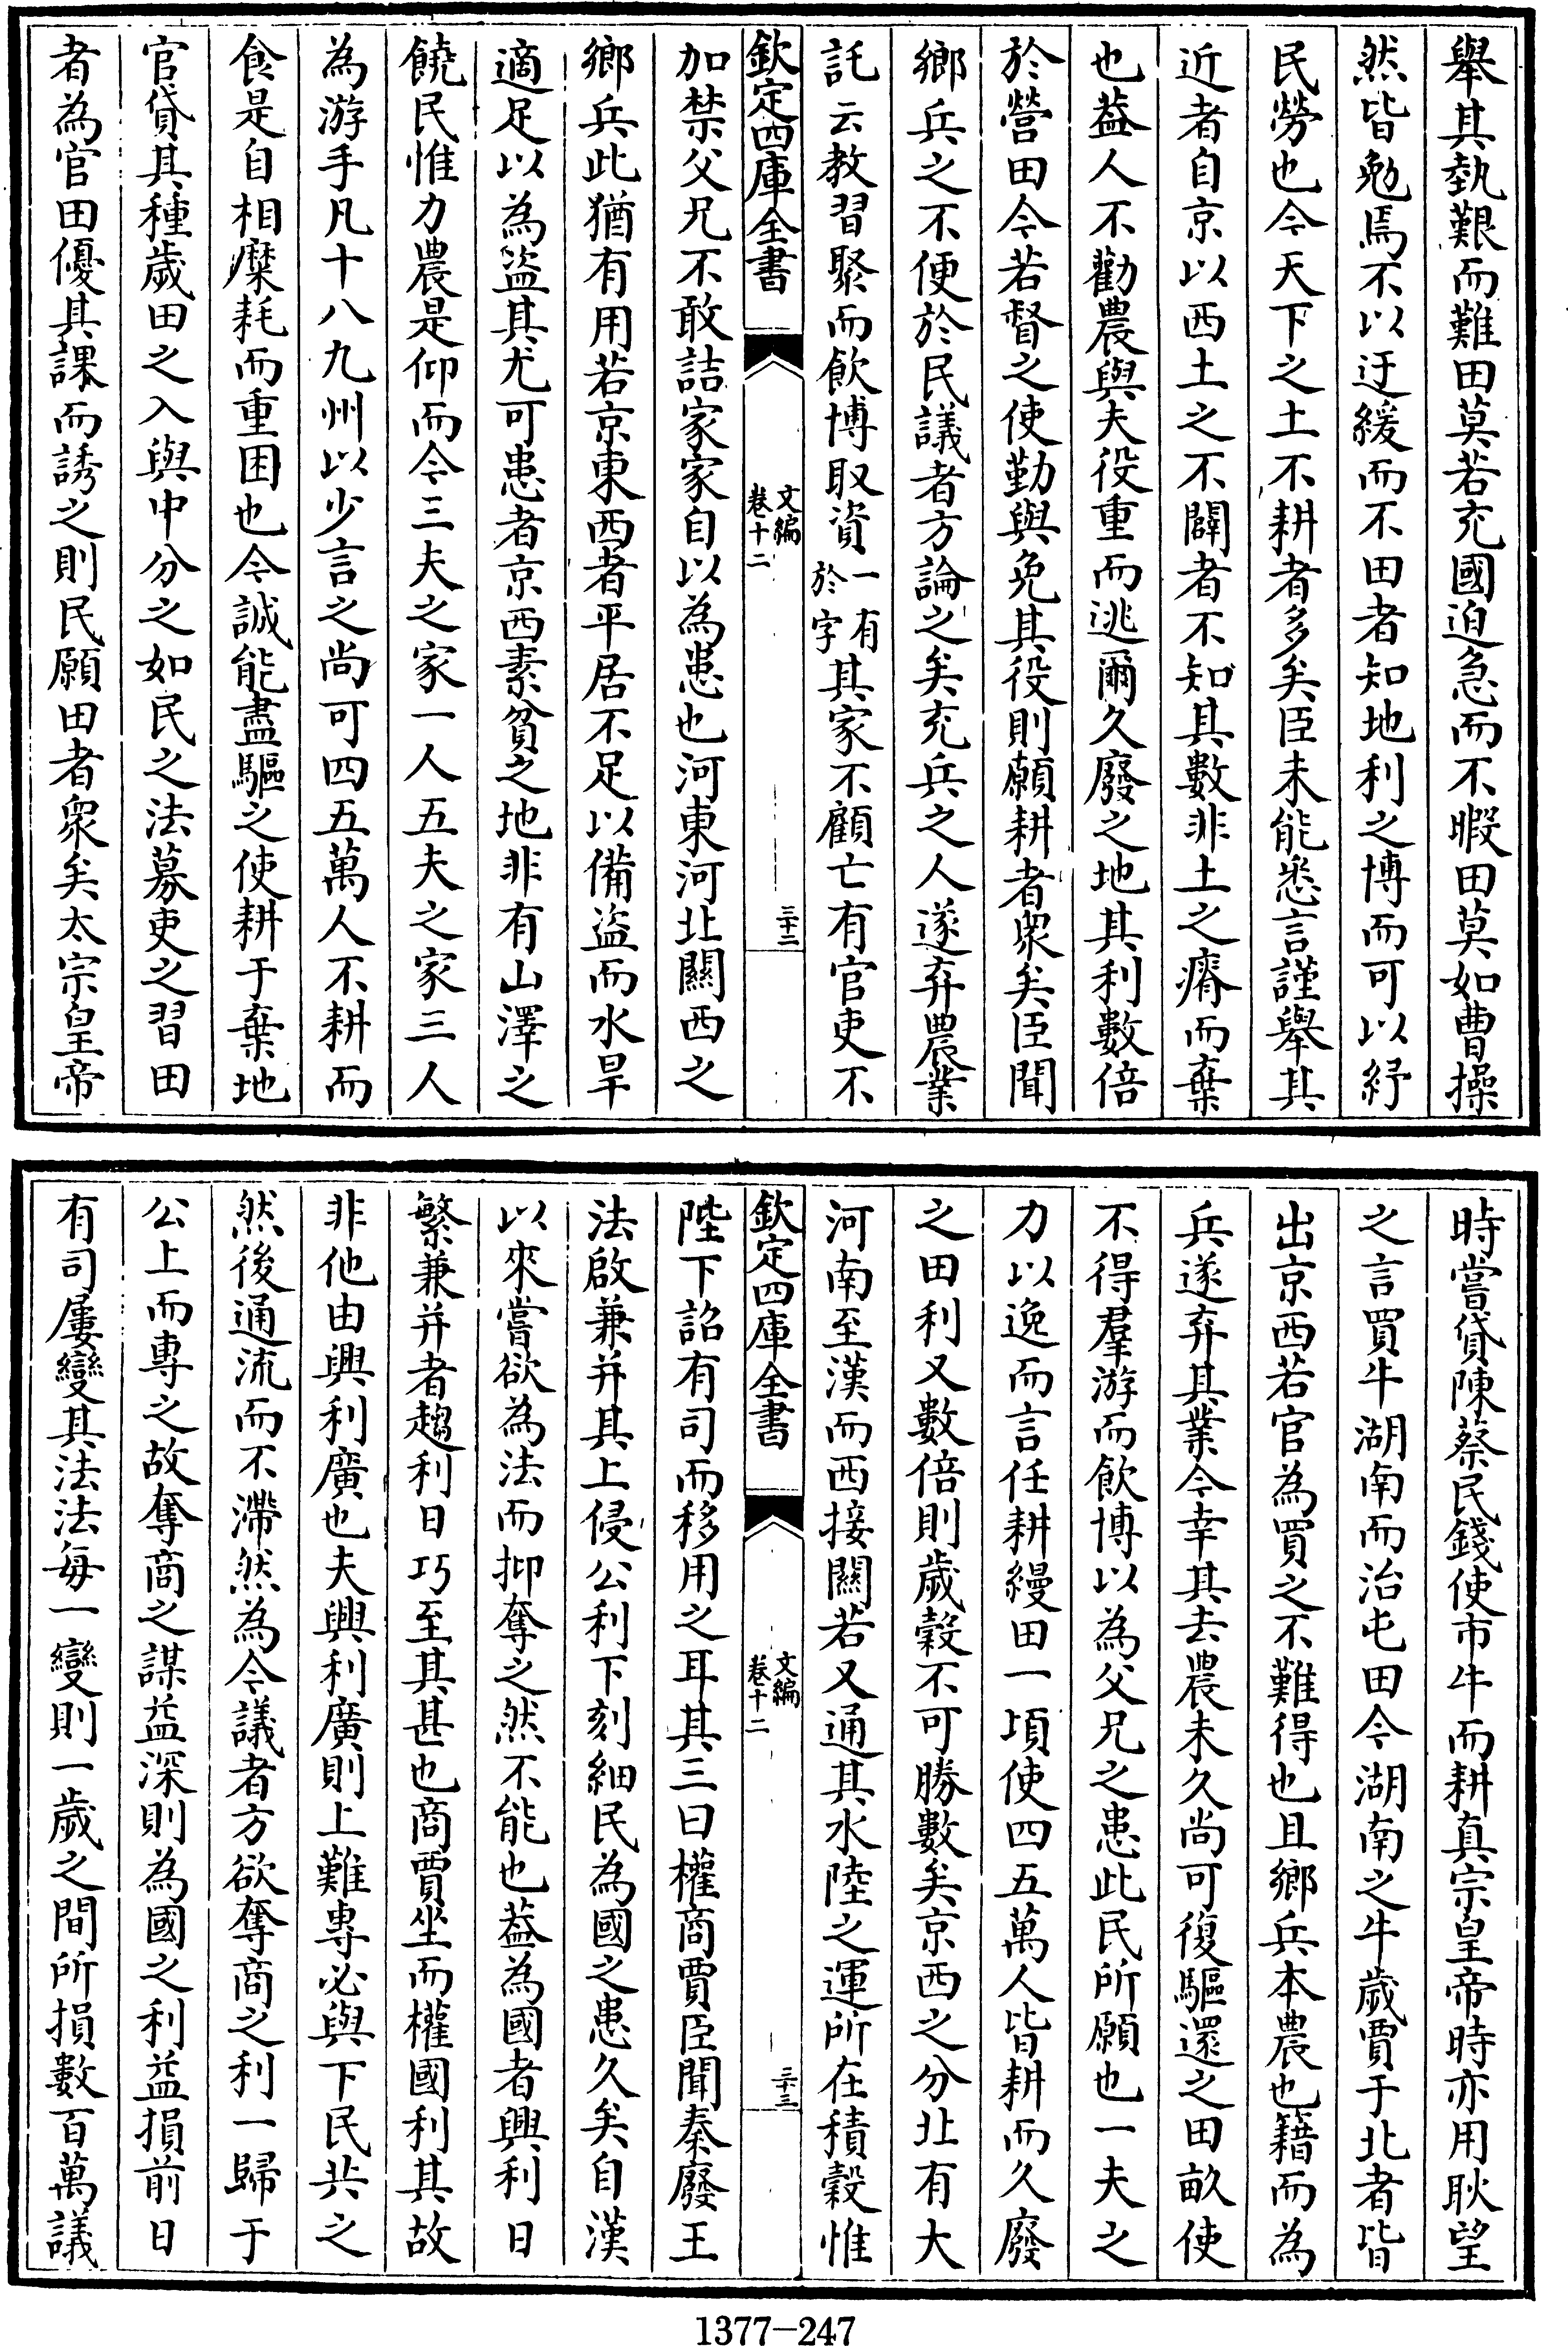 舉其埶艱而難田莫若充國迫急而不暇田莫如曹操
然皆勉焉不以迂緩而不田者知地利之博而可以紓
民勞也今天下之土不耕者多矣臣未能悉言謹舉其
近者自京以西土之不闢者不知其數非土之瘠而棄
也葢人不勸農與夫役重而逃爾久廢之地其利數倍
於營田今若督之使勤與免其役則願耕者衆矣臣聞
鄉兵之不便於民議者方論之矣充兵之人遂弃農業
託云教習聚而飲博取資一有於字其家不顧亡有官吏不
欽定四庫全書
文編
卷十二
三十二
加禁父兄不敢詰家家自以為患也河東河北關西之
鄉兵此猶有用若京東西者平居不足以備盜而水旱
適足以為盜其尤可患者京西素貧之地非有山澤之
饒民惟力農是仰而今三夫之家一人五夫之家三人
為游手凡十八九州以少言之尚可四五萬人不耕而
食是自相糜耗而重困也今誠能盡驅之使耕于棄地
官貸其種歲田之入與中分之如民之法募吏之習田
者為官田優其課而誘之則民願田者衆矣太宗皇帝
時嘗貸陳蔡民錢使市牛而耕真宗皇帝時亦用耿望
之言買牛湖南而治屯田今湖南之牛歲賈于北者皆
出京西若官為買之不難得也且鄉兵本農也籍而為
兵遂弃其業今幸其去農未久尚可復驅還之田畝使
不得羣游而飲博以為父兄之患此民所願也一夫之
力以逸而言任耕縵田一頃使四五萬人皆耕而久廢
之田利又數倍則歲穀不可勝數矣京西之分北有大
河南至漢而西接關若又通其水陸之運所在積穀惟
欽定四庫全書
文編
卷十二
三十三
陛下詔有司而移用之耳其三曰權商賈臣聞秦廢王
法啟兼并其上侵公利下刻細民為國之患久矣自漢
以來嘗欲為法而抑奪之然不能也葢為國者興利日
繁兼并者趨利日巧至其甚也商賈坐而權國利其故
非他由興利廣也夫興利廣則上難專必與下民共之
然後通流而不滯然為今議者方欲奪商之利一歸于
公上而專之故奪商之謀益深則為國之利益損前日
有司屢變其法法每一變則一歲之間所損數百萬議
1377-247